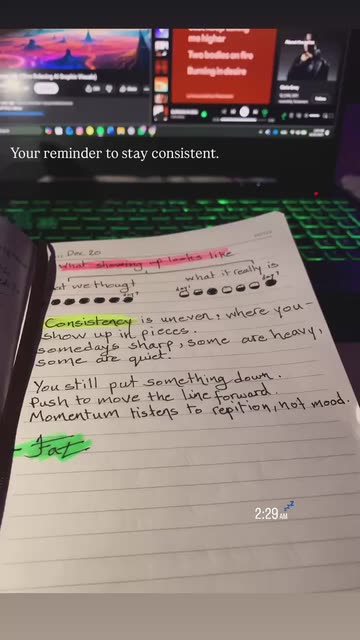 me higher
Two bodies on fire
Burning in desire
Follow
Your reminder to stay consistent.
Dec 20
What showing up looks like
we thought
what it really is
day 7
day 1
day 7
Consistency is uneven, where you-
show up in pieces.
somedays sharp, some are heavy,
some are quiet.
You still put something down.
Push to move the line forward.
Momentum listens to repition, not mood.
- Fat
2:29 AM
💤